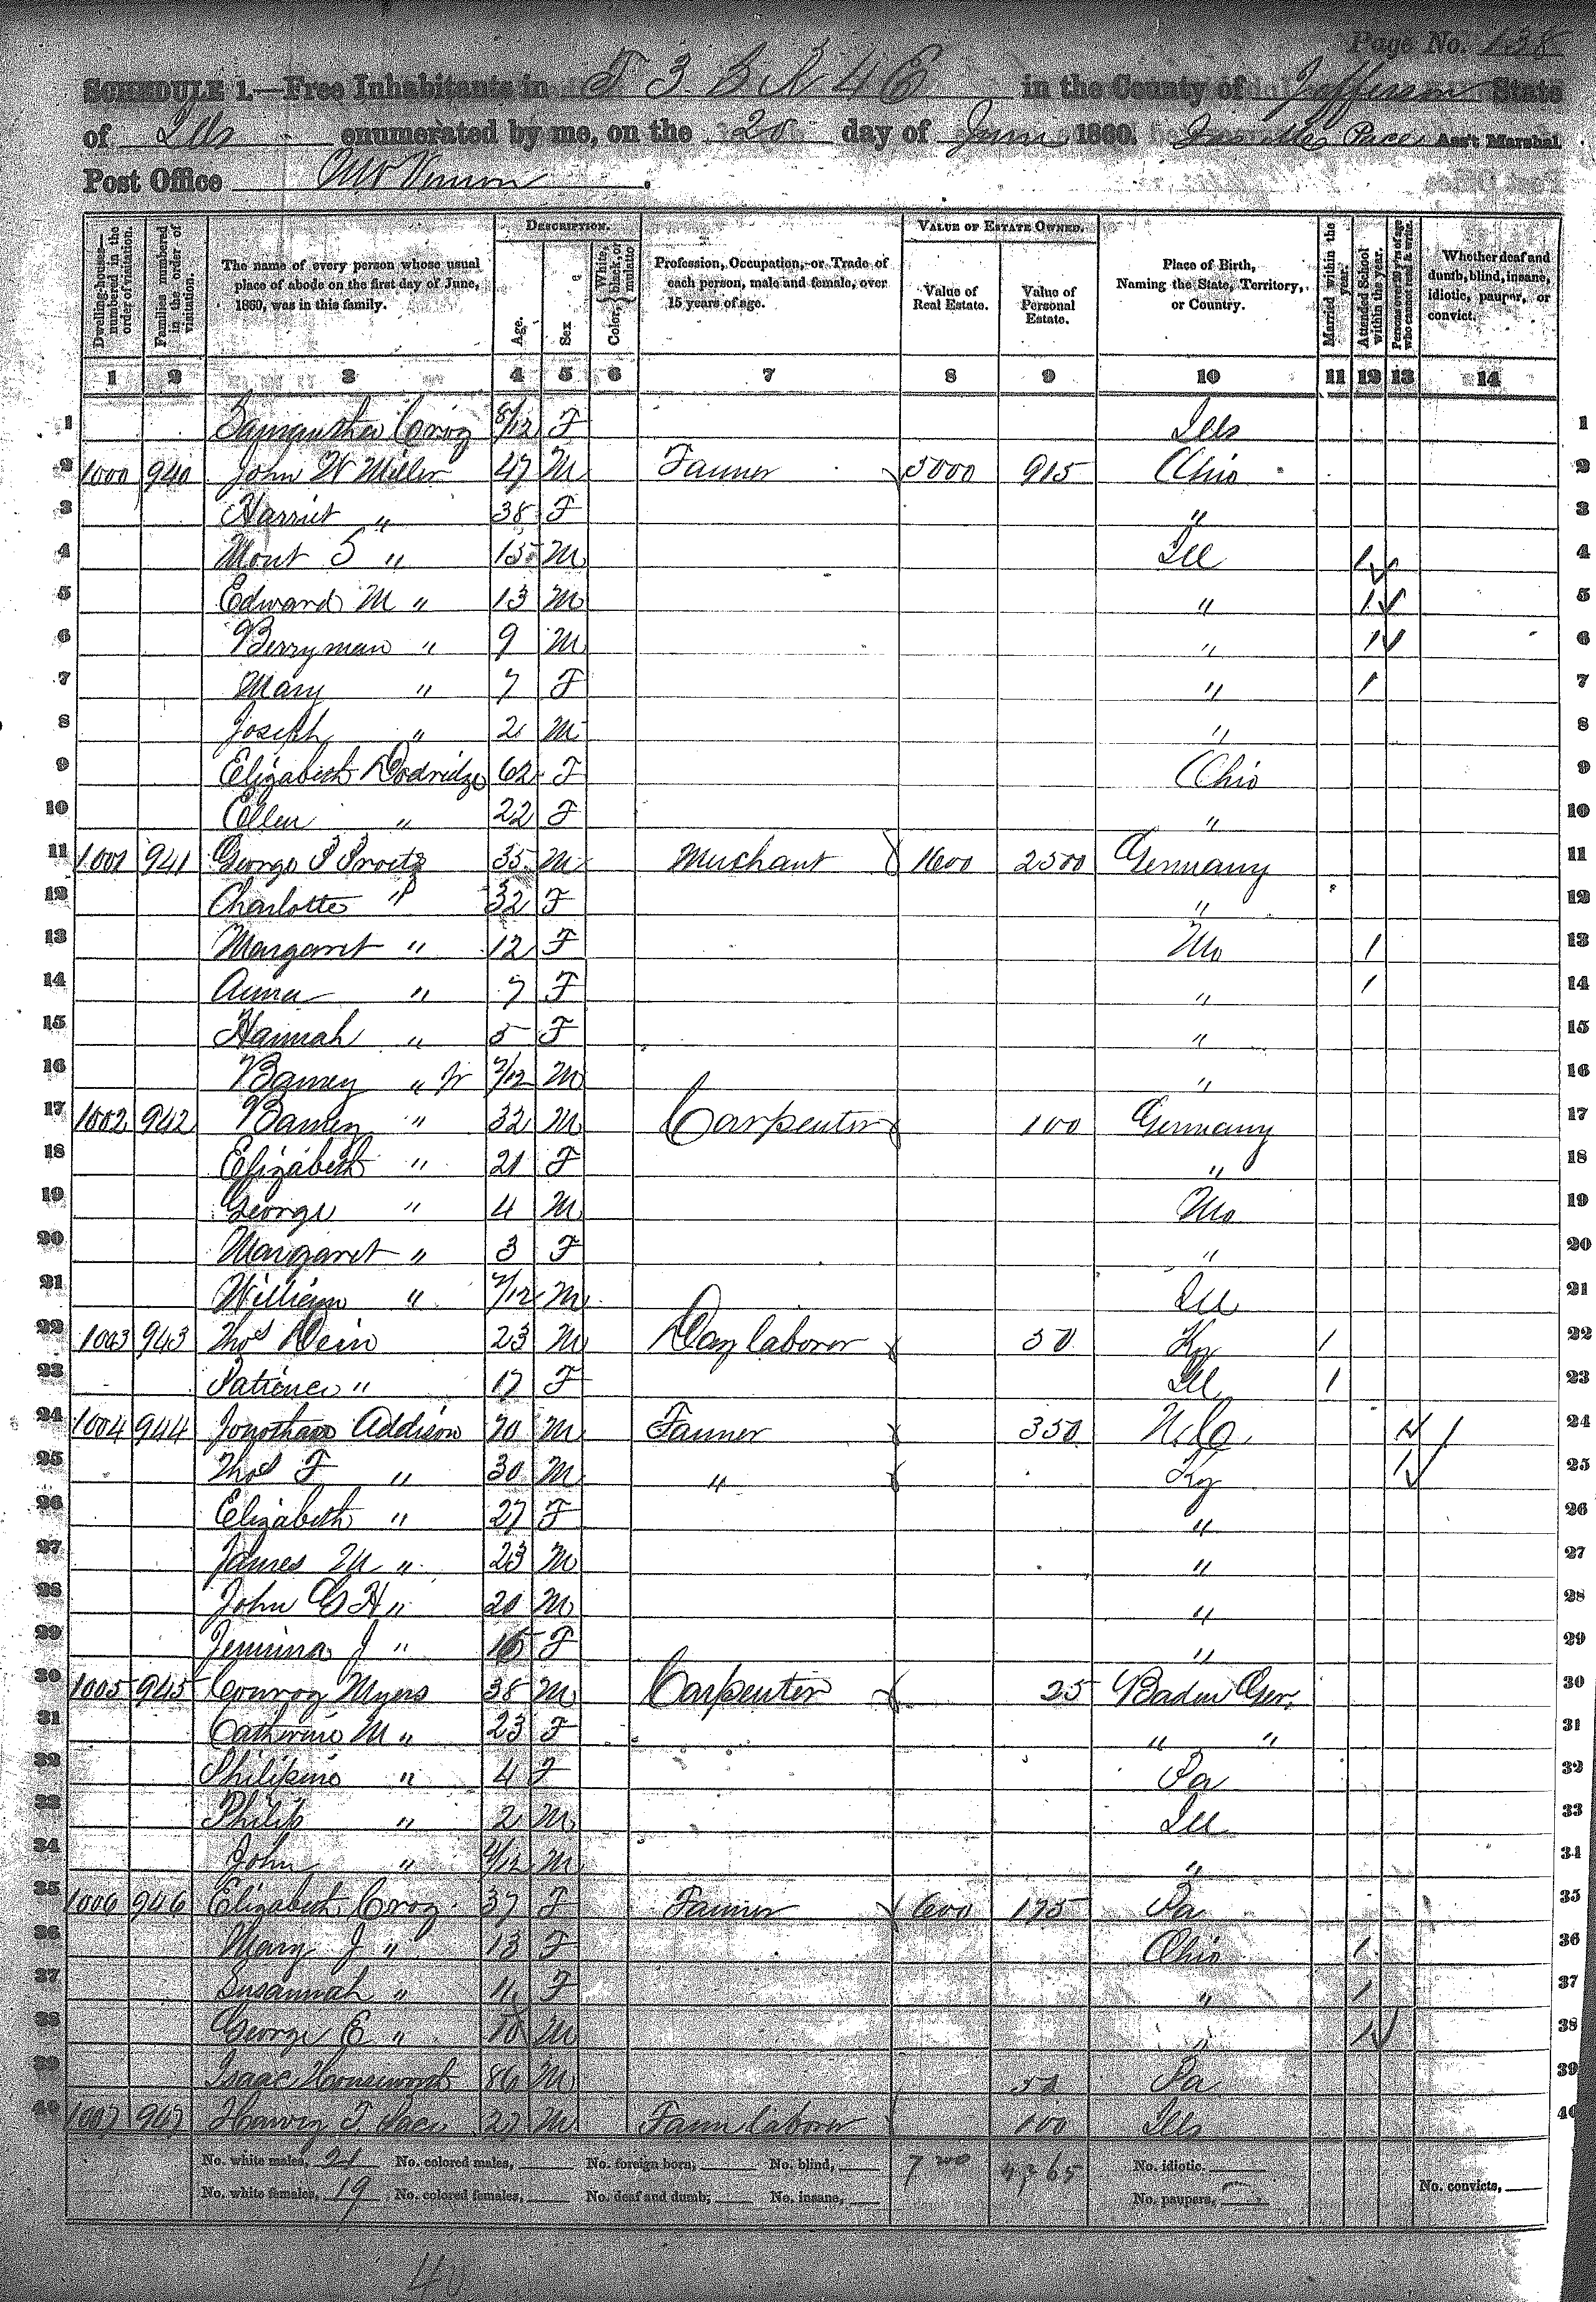 Page No. 138
SCHEDULE 1.—Free Inhabitants in T 3 S R 4 E in the County of Jefferson State
of Ills enumerated by me, on the 20 day of June 1860. Pace Ass't Marshal
Post Office Mt Vernon.
DESCRIPTION. VALUE OF ESTATE OWNED.
Dwelling-houses—numbered in the order of visitation. Families numbered in the order of visitation. The name of every person whose usual place of abode on the first day of June, 1860, was in this family. Age. Sex Color, White, black, or mulatto Profession, Occupation, or Trade of each person, male and female, over 15 years of age. Value of Real Estate. Value of Personal Estate. Place of Birth, Naming the State, Territory, or Country. Married within the year. Attended School within the year. Persons over 20 y'rs of age who cannot read & write. Whether deaf and dumb, blind, insane, idiotic, pauper, or convict.
1 2 3 4 5 6 7 8 9 10 11 12 13 14
1 Samantha 8/12 F Ills 1
2 1000 940 John W Miller 47 M Farmer 5000 915 Ohio 2
3 Harriet " 38 F " 3
4 Mont S " 15 M Ill 1 4
5 Edward M " 13 M " 1 5
6 Berryman " 9 M " 1 6
7 Mary " 7 F " 1 7
8 Joseph " 2 M " 8
9 Elizabeth Dodridge 62 F Ohio 9
10 Ellen " 22 F " 10
11 1001 941 George 35 M Merchant 1600 2500 Germany 11
12 Charlotte " 32 F " 12
13 Margaret " 12 F Mo 1 13
14 Anna " 7 F " 1 14
15 Hannah " 5 F " 15
16 Barney " Jr 7/12 M " 16
17 1002 942 Barney " 32 M Carpenter 100 Germany 17
18 Elizabeth " 21 F " 18
19 George " 4 M Mo 19
20 Margaret " 3 F " 20
21 William " 7/12 M Ill 21
22 1003 943 Thos Dein 23 M Day laborer 50 Ky 1 22
23 Patience " 17 F Ill 1 23
24 1004 944 Jonothan Addison 70 M Farmer 350 N.C. 1 24
25 Thos F " 30 M " Ky 1 25
26 Elizabeth " 27 F " 26
27 James M " 23 M " 27
28 John G H " 20 M " 28
29 Jemima J " 15 F " 29
30 1005 945 Conroy Myers 38 M Carpenter 25 Baden Ger. 30
31 Catherine M " 23 F " " 31
32 Philipine " 4 F Pa 32
33 Philip " 2 M Ill 33
34 John " 4/12 M " 34
35 1006 946 Elizabeth 37 F Farmer 600 175 Pa 35
36 Mary J " 13 F Ohio 1 36
37 Susannah " 11 F " 1 37
38 George E " 10 M " 1 38
39 Isaac 86 M 50 Pa 39
40 1007 947 Harvey T. Pace 27 M Farm laborer 100 Ills 40
No. white males, 21 No. colored males, No. foreign born, No. blind, 7200 4265 No. idiotic.
No. white females, 19 No. colored females, No. deaf and dumb, No. insane, No. paupers, No. convicts,
40